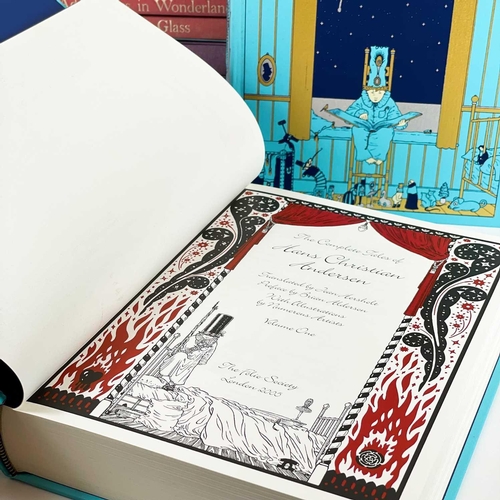 in Wonderlan
Glass
The Complete Tales of
Hans Christian
Andersen
Translated by Jean Hersholt
Preface by Brian Alderson
With Illustrations
by Numerous Artists
Volume One
The Folio Society
London 2005